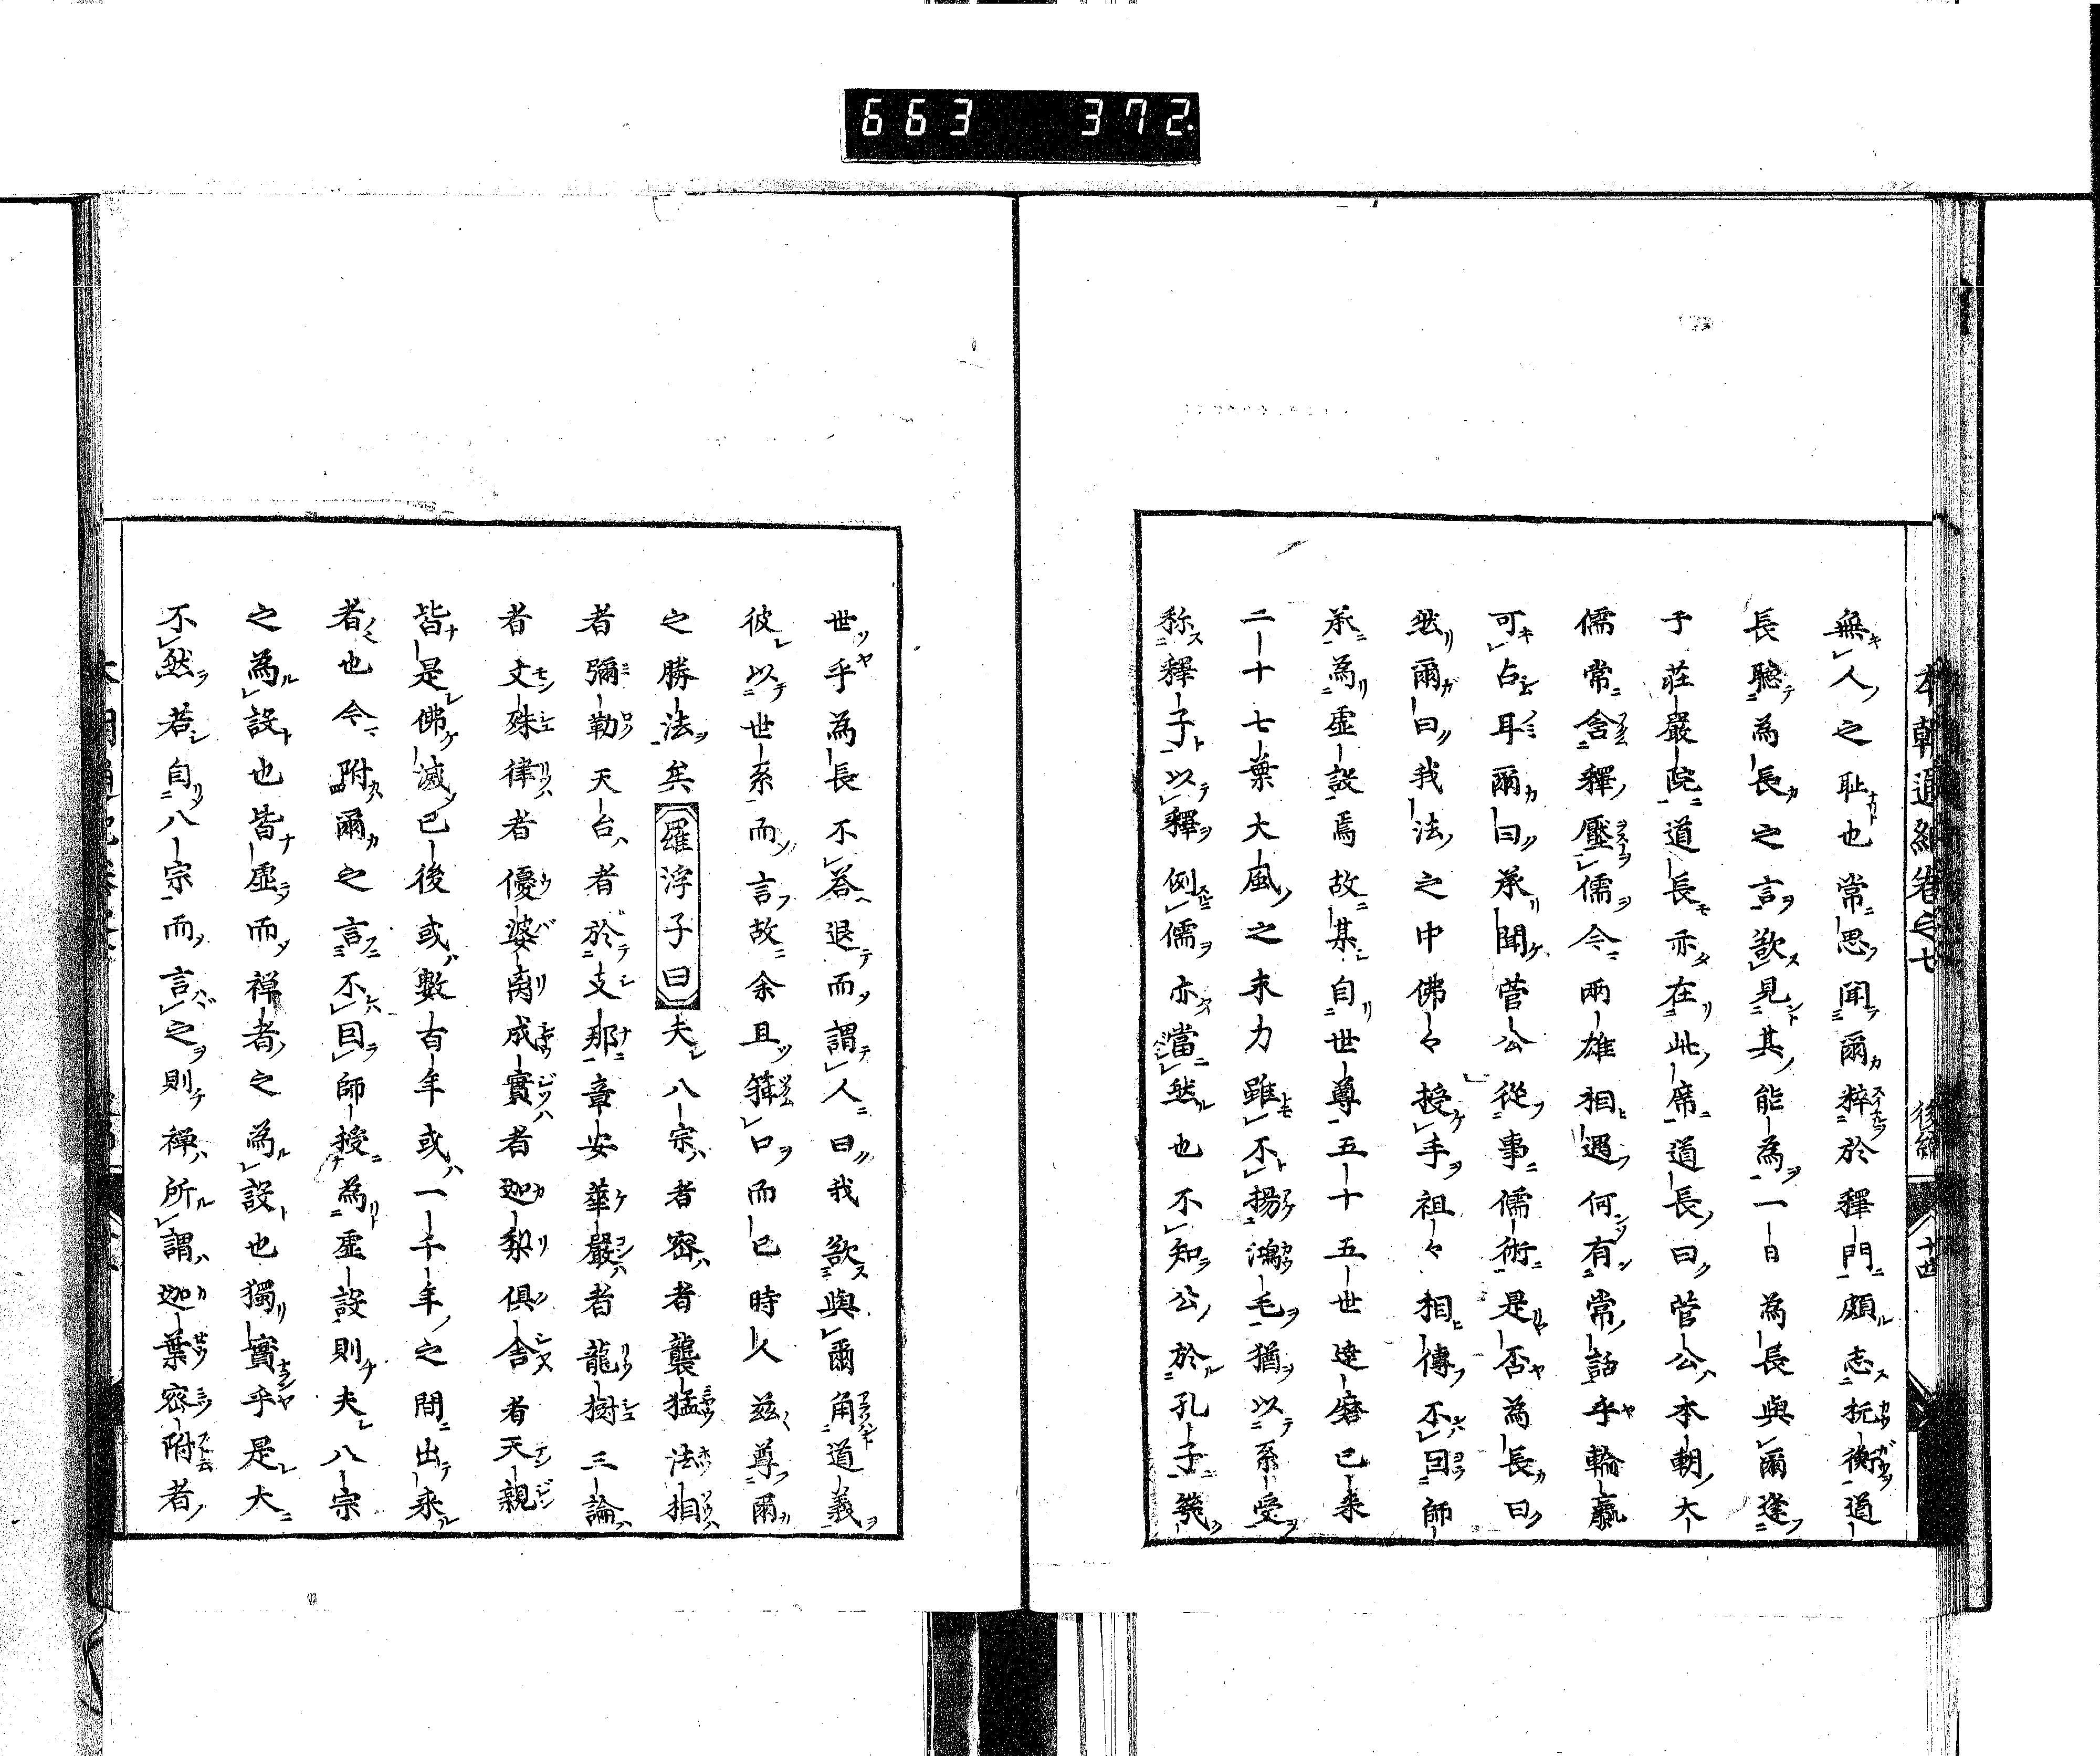 663 372.
本朝通紀卷之七 後編 十四
無人之耻也常思聞爾粹於釋門頗志抗衡道
長聽為長之言欲見其能為一日為長與爾逢
于莊嚴院道長亦在此席道長曰菅公本朝大
儒常含釋壓儒今兩雄相遇何有常話乎輪贏
可占耳爾曰承聞菅公從事儒術是否為長曰
然爾曰我法之中佛々授手祖々相傳不回師
承為虛設焉故某自世尊五十五世達磨已來
二十七葉大風之末力雖不揚鴻毛猶以系受
称釋子以釋例儒亦當然也不知公於孔子幾
世乎為長不荅退而謂人曰我欲與爾角道義
彼以世系而言故余且箝口而已時人茲尊爾
之勝法矣羅浮子曰夫八宗者密者龔猛法相
者彌勒天台者於支那章安華嚴者龍樹三論
者文殊律者優婆离成實者迦梨俱舍者天親
皆是佛滅已後或數百年或一千年之間出來
者也今附爾之言不目師授為虛設則夫八宗
之為設也皆虛而禅者之為設也獨實乎是大
不然若自八宗而言之則禅所謂迦葉密附者